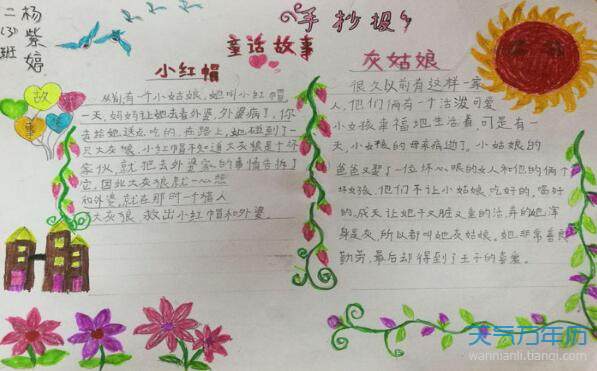 二(3)班
杨紫婷
手抄报
童话故事
故
事
小红帽
从前有一个小姑娘,她叫小红帽,
一天,妈妈让她去看外婆,外婆病了,你
去给她送点吃的,在路上,她碰到了一
只大灰狼,小红帽不知道大灰狼是个坏
家伙,就把去外婆家的事情告诉了
因此大灰狼就
和外婆,就在那时一个猎人
大灰狼 救出小红帽和外婆。
灰姑娘
很久以前有这样一家
人,他们俩有一个活泼可爱
小女孩幸福地生活着,可是有一
天,小女孩的母亲病逝了。小姑娘的
爸爸又娶了一位坏心眼的女人和他的俩个
坏女孩,他们不让小姑娘吃好的,喝好
的,成天让她干又脏又重的活弄的她浑
身是灰,所以都叫她灰姑娘。她非常善良
勤劳,最后却得到了王子的喜爱。
天气万年历
wannianli.tianqi.com